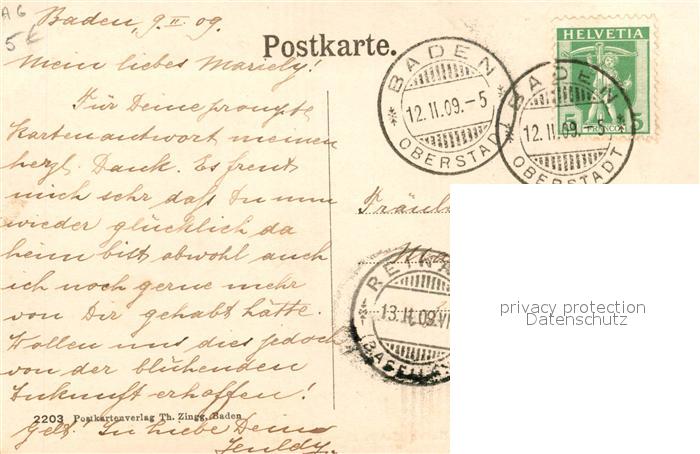 A6
5€
Baden, 9. II. 09.
Postkarte.
HELVETIA
5 5
FRANCO
BADEN
12.II.09.-5
OBERSTADT
BADEN
12.II.09.-5
OBERSTADT
Mein liebes Mariely!
Für Deine prompte
Kartenantwort meinen
herzl. Dank. Es freut
mich sehr daß Du nun
wieder glücklich da
heim bist obwohl auch
ich noch gerne mehr
von Dir gehabt hätte.
Wollen uns dies jedoch
von der blühenden
Zukunft erhoffen!
Gelt! In Liebe Deine
Fräul
REIN
13.II.09.VI
(BASELLA
privacy protection
Datenschutz
2203 Postkartenverlag Th. Zingg, Baden